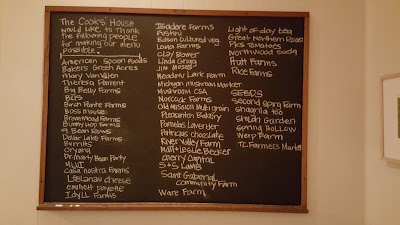 The Cook's House
would like to thank
the following people
for making our menu
possible:
American Spoon Foods
Bakers Green Acres
Mary Van Valien
Theresa Fament
Big Belly Farms
BDS
Birch Pointe Farms
Boss mouse
Brownwood Farms
Bunny Hop Farms
9 Bean Rows
Cedar Lake Farms
Burritts
Oryana
Dr. marty Bean Party
MLUI
casa nostra Farms
Leelanau cheese
emmett payette
Idyll Farms
Isadore Farms
Fustini
Edson cultured veg
Loma Farms
Clay Bowers
Linda Grigg
Jim Moses
Meadow Lark Farm
Michigan mushroom market
Mushroom CSA
Norconk Farms
Old Mission Multigrain
Pleasanton Bakery
Pamelas Lavender
Patricias chocolate
River Valley Farm
Matt & Leslie Becker
Cherry Capital
S & S Lamb
Saint Gabriel
community Farm
Ware Farm
Light of day tea
Great Northern Roast
PK's Tomatoes
Northwood soda
Pratt Farms
Rice Farms
SEEDS
Second Spring Farm
shagrila too
shilah garden
spring Hollow
Werp Farm
TC Farmers Market